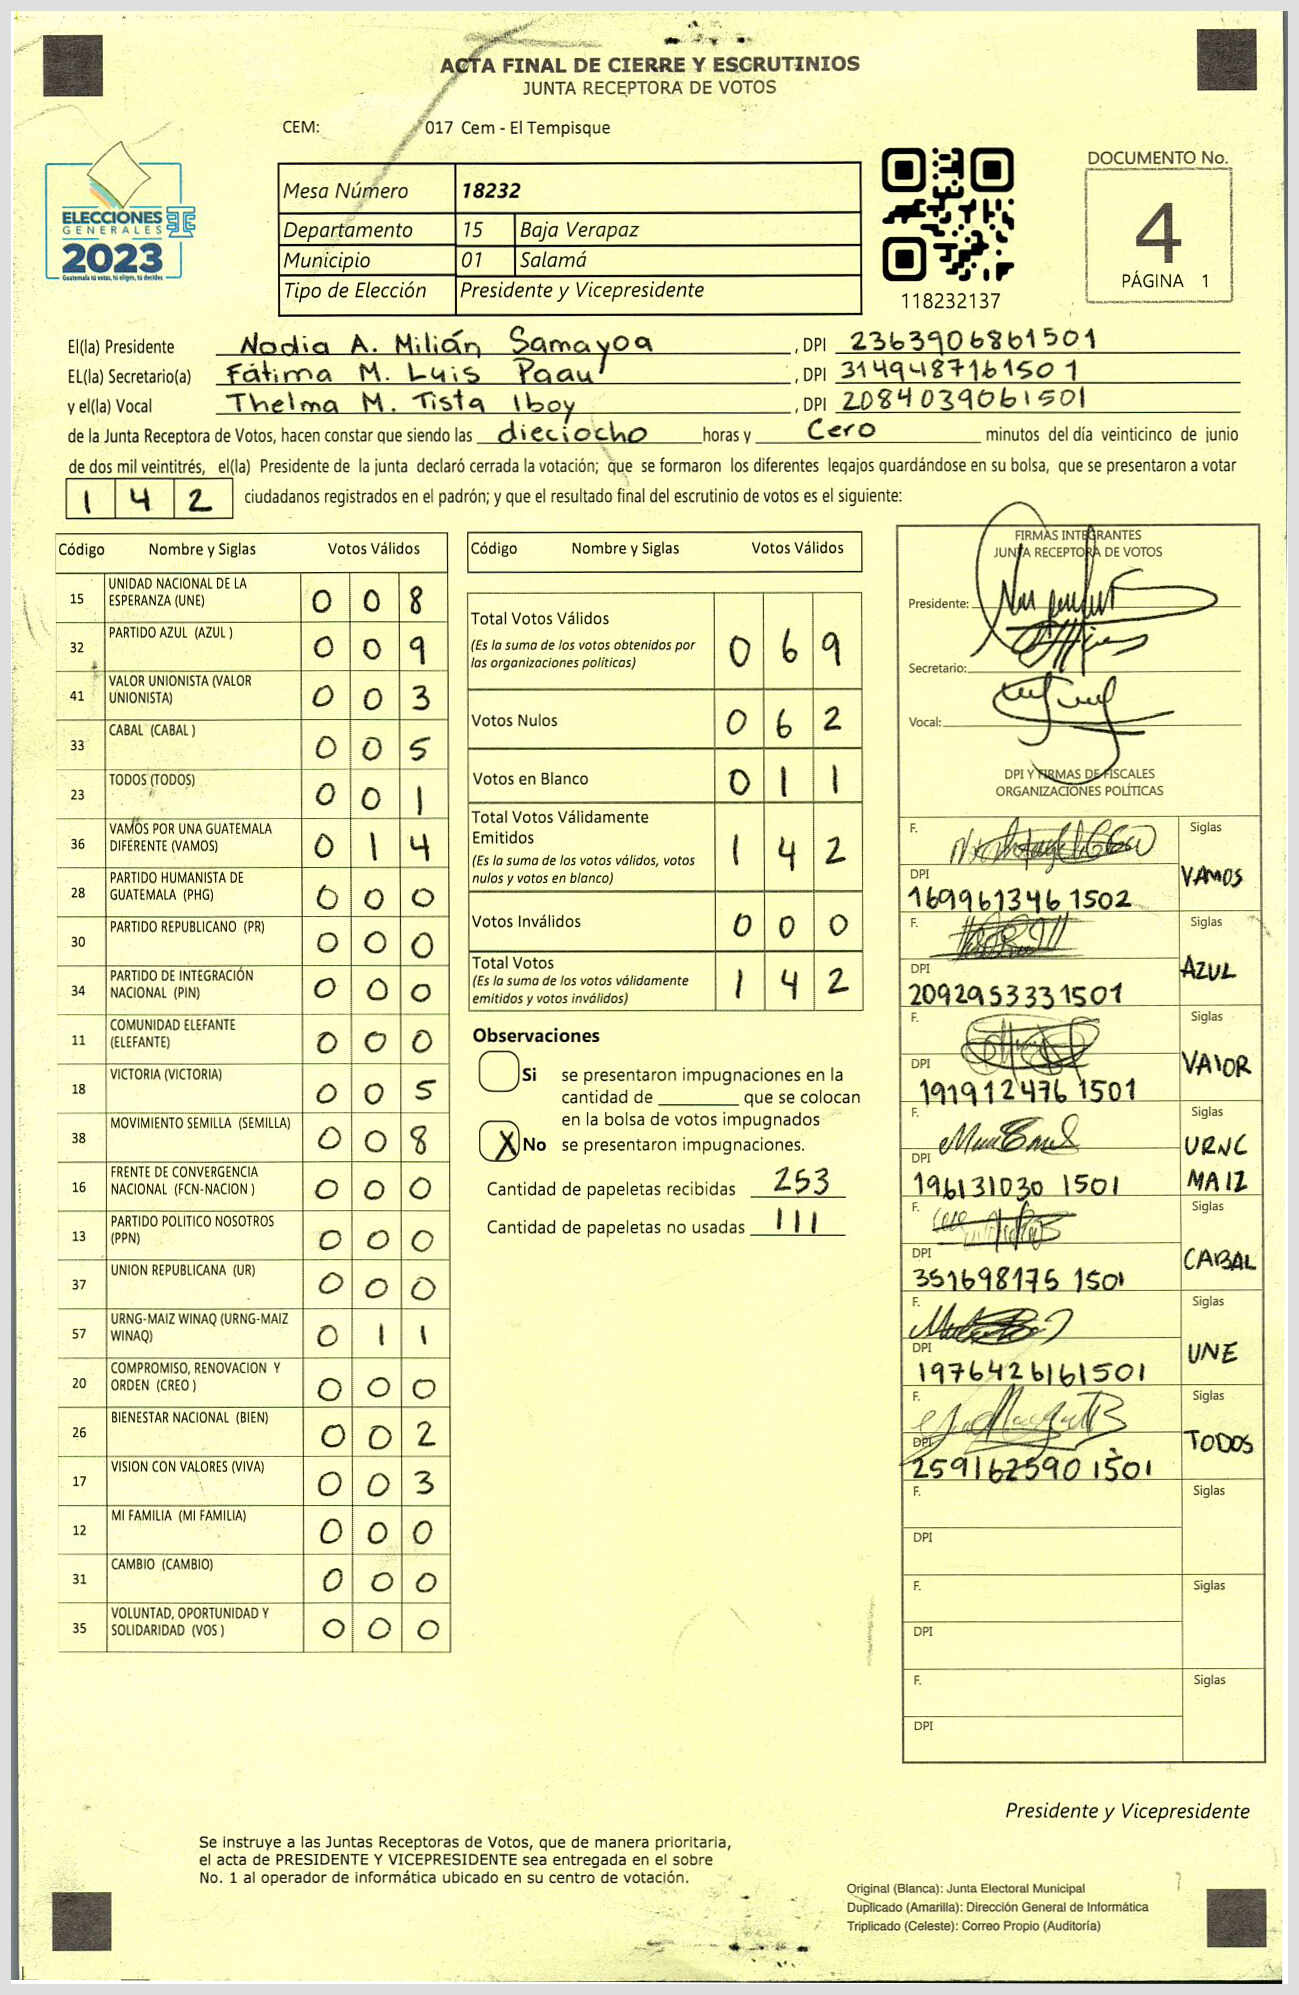 ACTA FINAL DE CIERRE Y ESCRUTINIOS
JUNTA RECEPTORA DE VOTOS
CEM: 017 Cem - El Tempisque
ELECCIONES
GENERALES
2023
Guatemala tú votas, tú eliges, tú decides
Mesa Número 18232
Departamento 15 Baja Verapaz
Municipio 01 Salamá
Tipo de Elección Presidente y Vicepresidente
118232137
DOCUMENTO No.
4
PÁGINA 1
El(la) Presidente Nadia A. Milián Samayoa , DPI 2363906861501
EL(la) Secretario(a) Fátima M. Luis Paau , DPI 3149487161501
y el(la) Vocal Thelma M. Tista Iboy , DPI 2084039061501
de la Junta Receptora de Votos, hacen constar que siendo las dieciocho horas y Cero minutos del día veinticinco de junio
de dos mil veintitrés, el(la) Presidente de la junta declaró cerrada la votación; que se formaron los diferentes legajos guardándose en su bolsa, que se presentaron a votar
142 ciudadanos registrados en el padrón; y que el resultado final del escrutinio de votos es el siguiente:
Código Nombre y Siglas Votos Válidos
15 UNIDAD NACIONAL DE LA ESPERANZA (UNE) 0 0 8
32 PARTIDO AZUL (AZUL ) 0 0 9
41 VALOR UNIONISTA (VALOR UNIONISTA) 0 0 3
33 CABAL (CABAL ) 0 0 5
23 TODOS (TODOS) 0 0 1
36 VAMOS POR UNA GUATEMALA DIFERENTE (VAMOS) 0 1 4
28 PARTIDO HUMANISTA DE GUATEMALA (PHG) 0 0 0
30 PARTIDO REPUBLICANO (PR) 0 0 0
34 PARTIDO DE INTEGRACIÓN NACIONAL (PIN) 0 0 0
11 COMUNIDAD ELEFANTE (ELEFANTE) 0 0 0
18 VICTORIA (VICTORIA) 0 0 5
38 MOVIMIENTO SEMILLA (SEMILLA) 0 0 8
16 FRENTE DE CONVERGENCIA NACIONAL (FCN-NACION ) 0 0 0
13 PARTIDO POLITICO NOSOTROS (PPN) 0 0 0
37 UNION REPUBLICANA (UR) 0 0 0
57 URNG-MAIZ WINAQ (URNG-MAIZ WINAQ) 0 1 1
20 COMPROMISO, RENOVACION Y ORDEN (CREO ) 0 0 0
26 BIENESTAR NACIONAL (BIEN) 0 0 2
17 VISION CON VALORES (VIVA) 0 0 3
12 MI FAMILIA (MI FAMILIA) 0 0 0
31 CAMBIO (CAMBIO) 0 0 0
35 VOLUNTAD, OPORTUNIDAD Y SOLIDARIDAD (VOS ) 0 0 0
Código Nombre y Siglas Votos Válidos
Total Votos Válidos 0 6 9
(Es la suma de los votos obtenidos por
las organizaciones políticas)
Votos Nulos 0 6 2
Votos en Blanco 0 1 1
Total Votos Válidamente
Emitidos 1 4 2
(Es la suma de los votos válidos, votos
nulos y votos en blanco)
Votos Inválidos 0 0 0
Total Votos 1 4 2
(Es la suma de los votos válidamente
emitidos y votos inválidos)
Observaciones
Si se presentaron impugnaciones en la
cantidad de ________ que se colocan
en la bolsa de votos impugnados
X No se presentaron impugnaciones.
Cantidad de papeletas recibidas 253
Cantidad de papeletas no usadas 111
FIRMAS INTEGRANTES
JUNTA RECEPTORA DE VOTOS
Presidente:
Secretario:
Vocal:
DPI Y FIRMAS DE FISCALES
ORGANIZACIONES POLÍTICAS
F. Siglas
DPI VAMOS
169961346 1502
F. Siglas
DPI AZUL
2092953331501
F. Siglas
DPI VAlOR
191912476 1501
F. Siglas
DPI URNC
196131030 1501 MAIZ
F. Siglas
DPI CABAL
351698175 1501
F. Siglas
DPI UNE
1976426161501
F. Siglas
DPI TODOS
2591625901501
F. Siglas
DPI
F. Siglas
DPI
F. Siglas
DPI
Presidente y Vicepresidente
Se instruye a las Juntas Receptoras de Votos, que de manera prioritaria,
el acta de PRESIDENTE Y VICEPRESIDENTE sea entregada en el sobre
No. 1 al operador de informática ubicado en su centro de votación.
Original (Blanca): Junta Electoral Municipal
Duplicado (Amarilla): Dirección General de Informática
Triplicado (Celeste): Correo Propio (Auditoría)